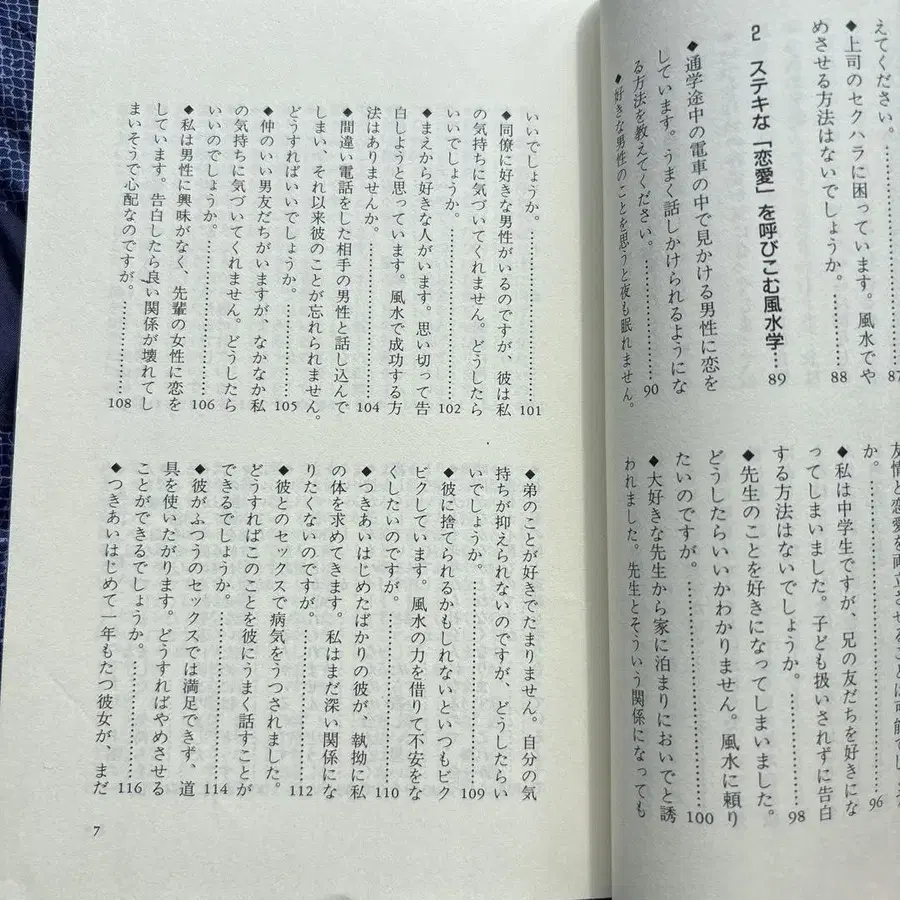 えてください。……87
◆上司のセクハラに困っています。風水でや
めさせる方法はないでしょうか。……88
2 ステキな「恋愛」を呼びこむ風水学…89
◆通学途中の電車の中で見かける男性に恋を
しています。うまく話しかけられるようにな
る方法を教えてください。……90
◆好きな男性のことを思うと夜も眠れません。
友情と恋愛を両立させることは可能でし
か。……96
◆私は中学生ですが、兄の友だちを好きにな
ってしまいました。子ども扱いされずに告白
する方法はないでしょうか。……98
◆先生のことを好きになってしまいました。
どうしたらいいかわかりません。風水に頼り
たいのですが。……100
◆大好きな先生から家に泊まりにおいでと誘
われました。先生とそういう関係になっても
いいでしょうか。……101
◆同僚に好きな男性がいるのですが、彼は私
の気持ちに気づいてくれません。どうしたら
いいでしょうか。……102
◆まえから好きな人がいます。思い切って告
白しようと思っています。風水で成功する方
法はありませんか。……104
◆間違い電話をした相手の男性と話し込んで
しまい、それ以来彼のことが忘れられません。
どうすればいいでしょうか。……105
◆仲のいい男友だちがいますが、なかなか私
の気持ちに気づいてくれません。どうしたら
いいのでしょうか。……106
◆私は男性に興味がなく、先輩の女性に恋を
しています。告白したら良い関係が壊れてし
まいそうで心配なのですが。……108
◆弟のことが好きでたまりません。自分の気
持ちが抑えられないのですが、どうしたらい
いでしょうか。……109
◆彼に捨てられるかもしれないといつもビク
ビクしています。風水の力を借りて不安をな
くしたいのですが。……110
◆つきあいはじめたばかりの彼が、執拗に私
の体を求めてきます。私はまだ深い関係にな
りたくないのですが。……112
◆彼とのセックスで病気をうつされました。
どうすればこのことを彼にうまく話すことが
できるでしょうか。……114
◆彼がふつうのセックスでは満足できず、道
具を使いたがります。どうすればやめさせる
ことができるでしょうか。……116
◆つきあいはじめて一年もたつ彼女が、まだ
7